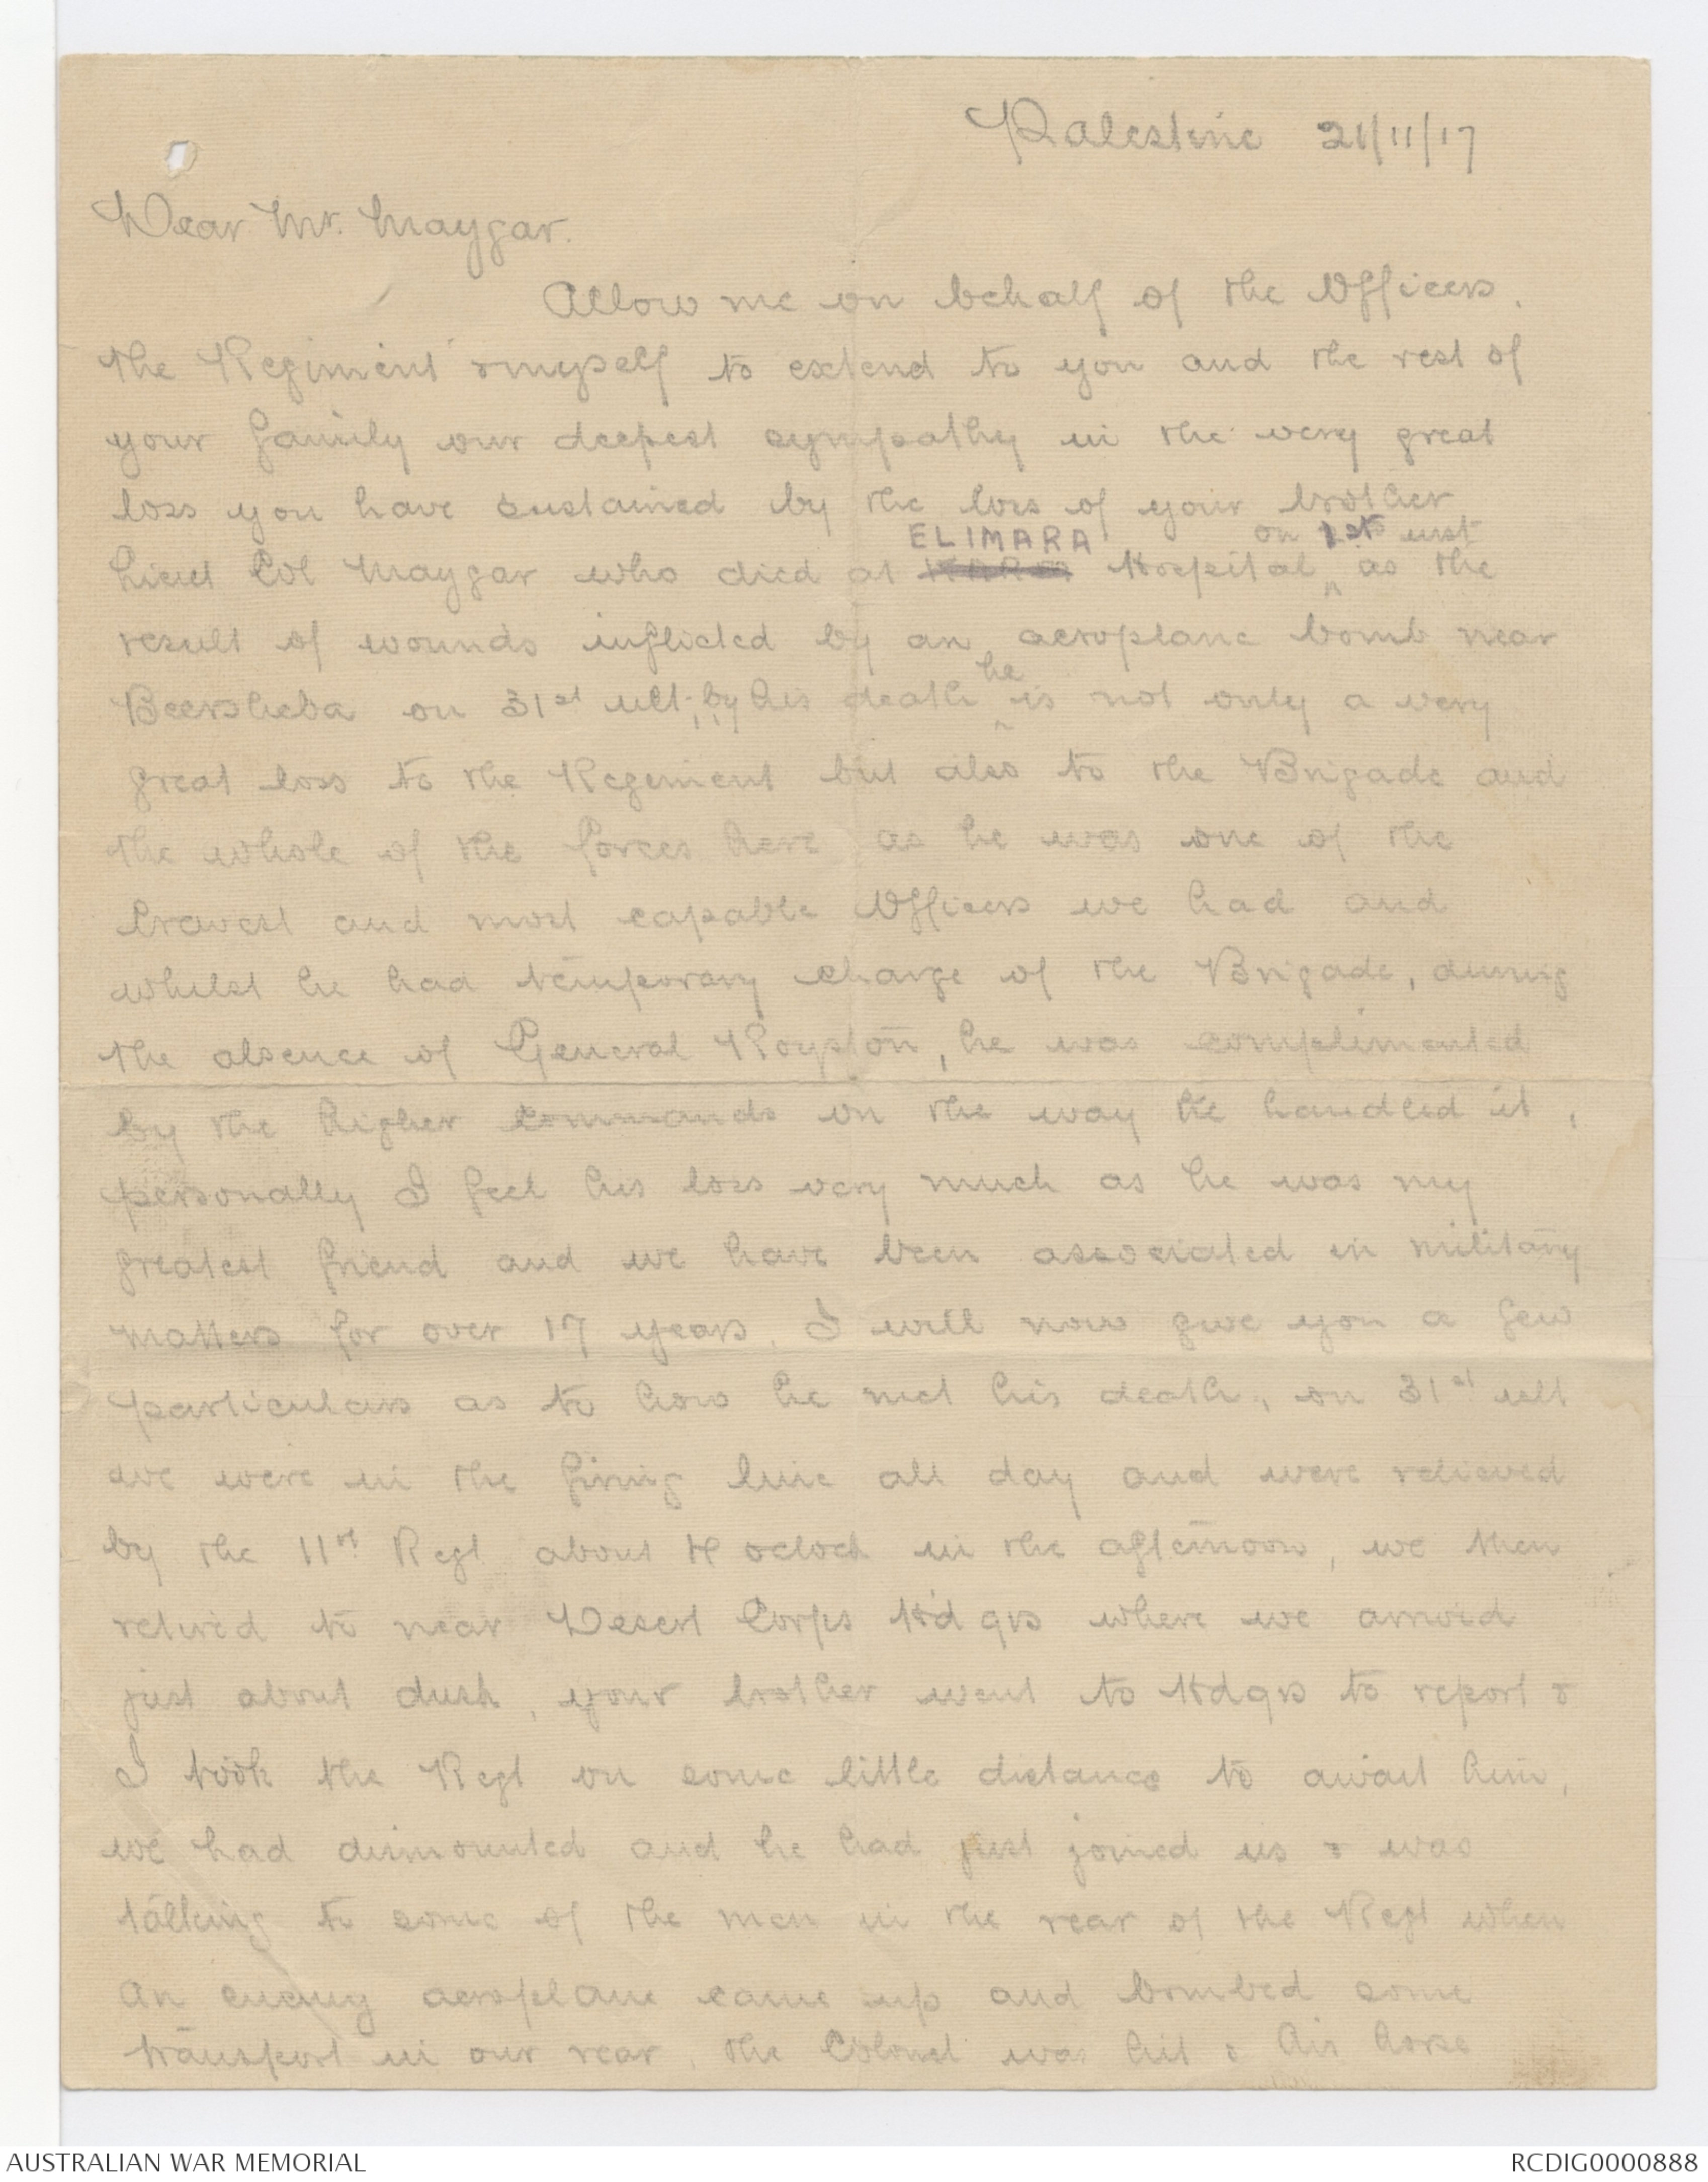 Palestine 21/11/17
Dear Mr. Maygar.
Allow me on behalf of the Officers,
the Regiment & myself to extend to you and the rest of
your family our deepest sympathy in the very great
loss you have sustained by the loss of your brother
ELIMARA on 1st inst
Lieut Col Maygar who died at Hospital ^ as the
result of wounds inflicted by an aeroplane bomb near
he
Beersheba on 31st ult; by his death ^ is not only a very
great loss to the Regiment but also to the Brigade and
the whole of the forces here as he was one of the
bravest and most capable Officers we had and
whilst he had temporary charge of the Brigade, during
the absence of General Royston, he was complimented
by the higher commands on the way he handled it,
personally I feel his loss very much as he was my
greatest friend and we have been associated in military
matters for over 17 years. I will now give you a few
particulars as to how he met his death, on 31st ult
we were in the firing line all day and were relieved
by the 11th Regt about 4 oclock in the afternoon, we then
retired to near Desert Corps Hd qrs where we arrived
just about dusk, your brother went to Hdqrs to report &
I took the Regt on some little distance to await him,
we had dismounted and he had just joined us & was
talking to some of the men in the rear of the Regt when
an enemy aeroplane came up and bombed some
transport in our rear, the Colonel was hit & his horse
AUSTRALIAN WAR MEMORIAL
RCDIG0000888